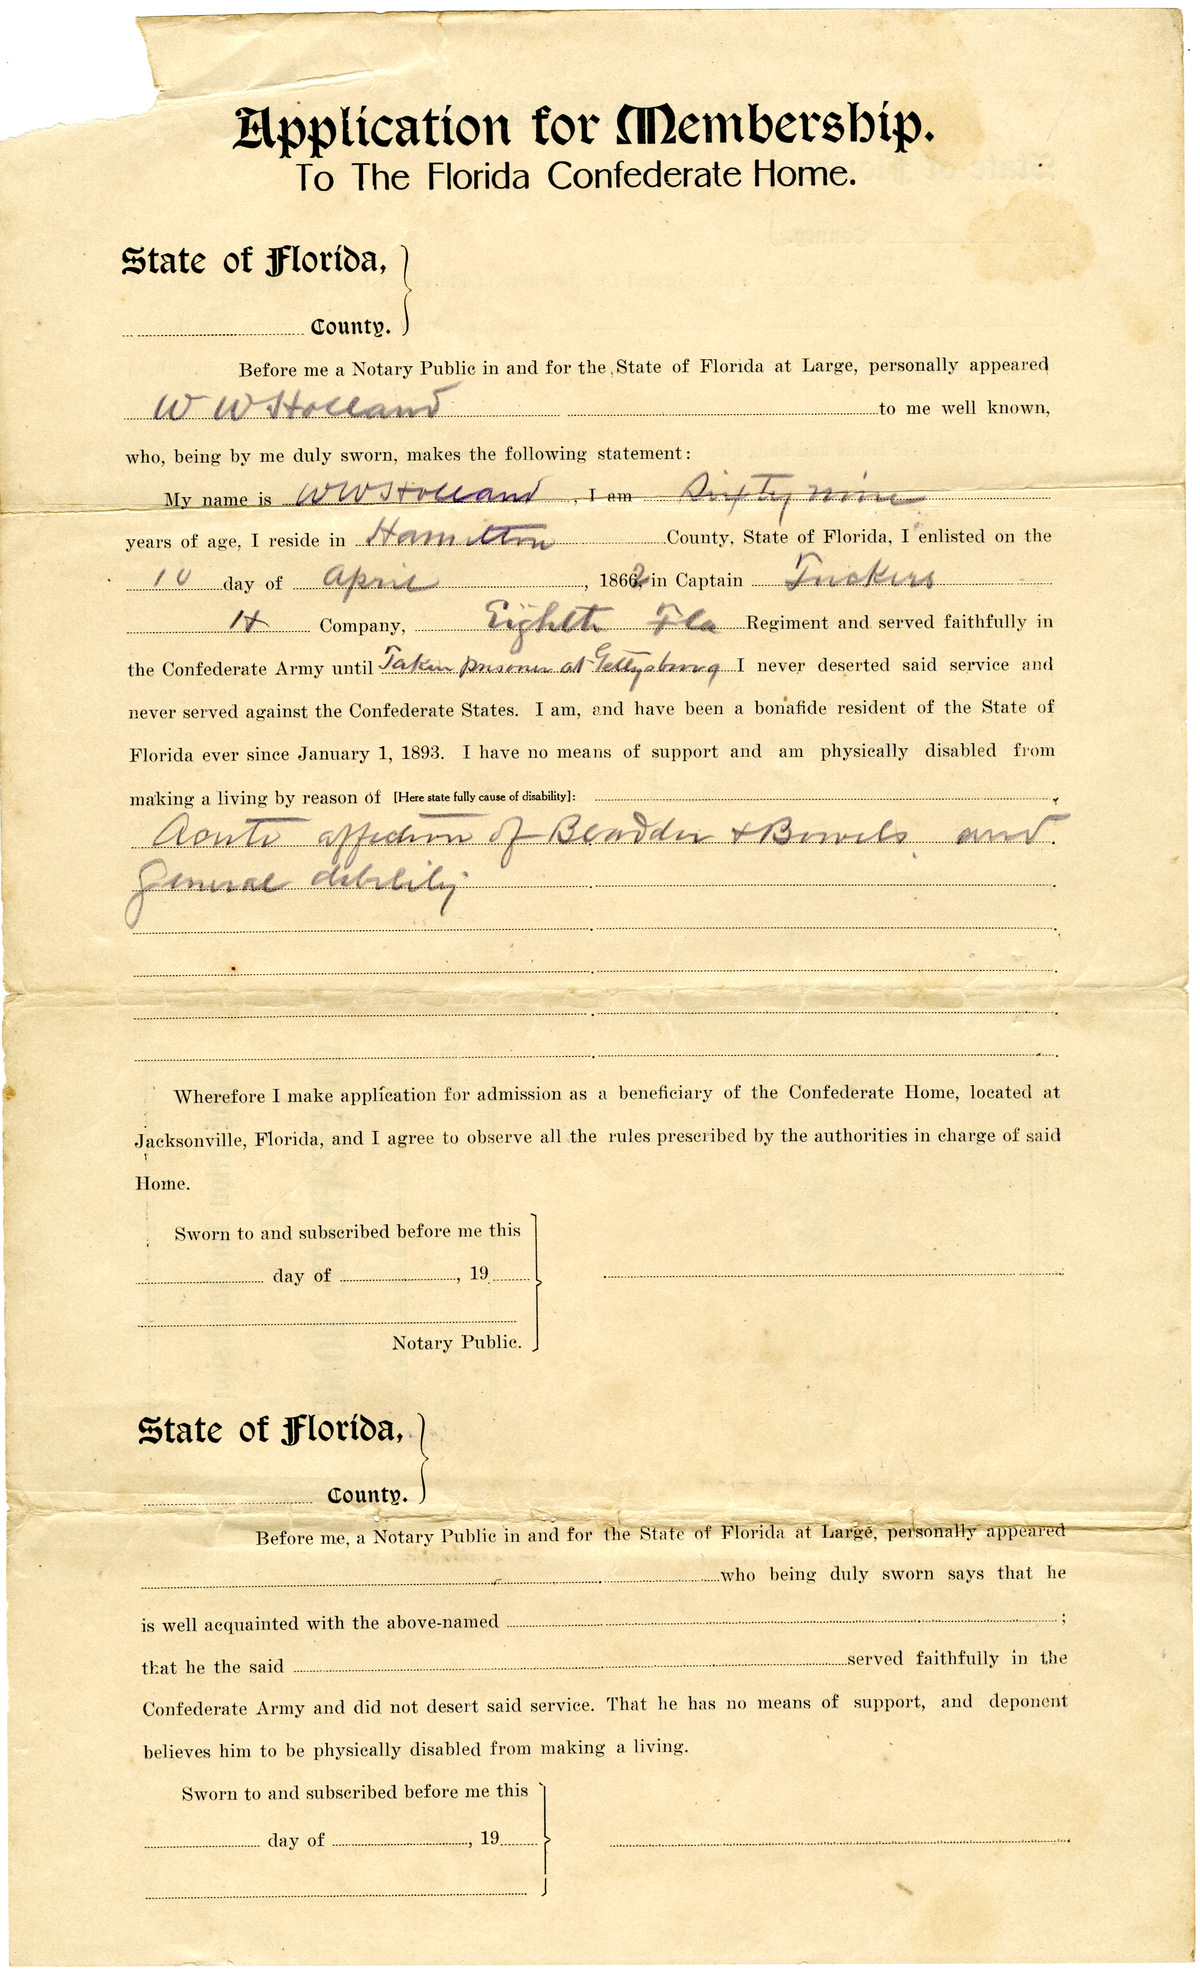 Application for Membership.
To The Florida Confederate Home.
State of Florida,
County.
Before me a Notary Public in and for the State of Florida at Large, personally appeared
W W Holland to me well known,
who, being by me duly sworn, makes the following statement:
My name is W W Holland, I am Sixty nine
years of age, I reside in Hamilton County, State of Florida, I enlisted on the
10 day of April, 1862, in Captain Tuckers
H Company, Eighth Fla Regiment and served faithfully in
the Confederate Army until Taken prisoner at Gettysburg I never deserted said service and
never served against the Confederate States. I am, and have been a bonafide resident of the State of
Florida ever since January 1, 1893. I have no means of support and am physically disabled from
making a living by reason of [Here state fully cause of disability]:
Acute affection of Bladder & Bowels and
General debility
Wherefore I make application for admission as a beneficiary of the Confederate Home, located at
Jacksonville, Florida, and I agree to observe all the rules prescribed by the authorities in charge of said
Home.
Sworn to and subscribed before me this
day of , 19
Notary Public.
State of Florida,
County.
Before me, a Notary Public in and for the State of Florida at Large, personally appeared
who being duly sworn says that he
is well acquainted with the above-named ;
that he the said served faithfully in the
Confederate Army and did not desert said service. That he has no means of support, and deponent
believes him to be physically disabled from making a living.
Sworn to and subscribed before me this
day of , 19